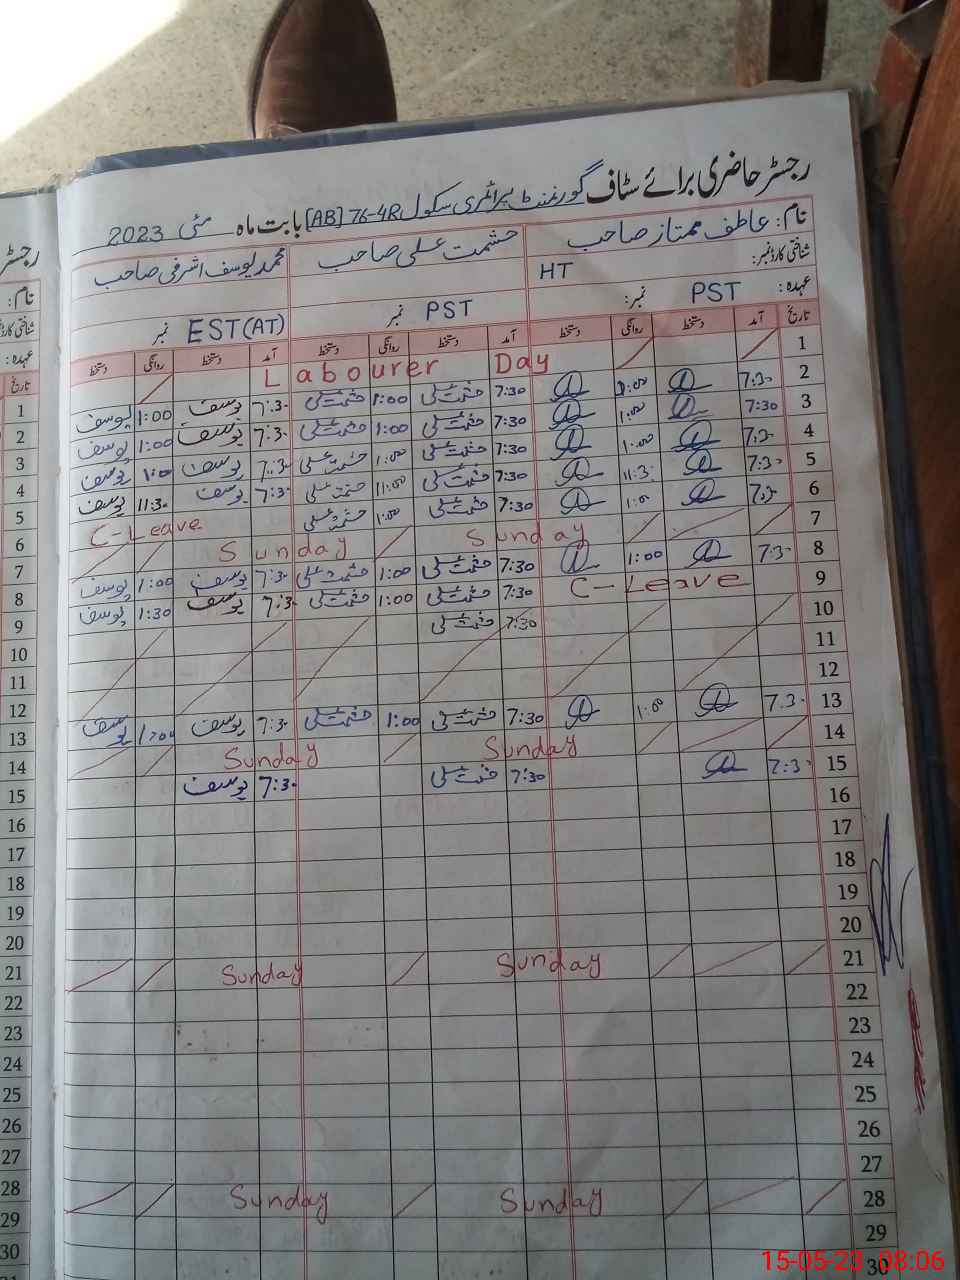 رجسٹر حاضری برائے سٹاف گورنمنٹ پرائمری سکول 76-4R [AB] بابت ماہ مئی 2023
نام: عاطف ممتاز صاحب حشمت علی صاحب محمد یوسف اشرفی صاحب
شناختی کارڈ نمبر:
HT
عہدہ: PST نمبر: PST نمبر EST (AT) نمبر
تاریخ آمد دستخط روانگی دستخط آمد دستخط روانگی دستخط آمد دستخط روانگی دستخط
1 Labourer Day
2 7:30 1:00 7:30 حشمت علی 1:00 حشمت علی 7:30 یوسف 1:00 یوسف
3 7:30 1:00 7:30 حشمت علی 1:00 حشمت علی 7:30 یوسف 1:00 یوسف
4 7:30 1:00 7:30 حشمت علی 1:00 حشمت علی 7:30 یوسف 1:00 یوسف
5 7:30 11:30 7:30 حشمت علی 11:00 حشمت علی 7:30 یوسف 11:30 یوسف
6 7:30 1:00 7:30 حشمت علی 1:00 حشمت علی C-Leave
7 Sunday Sunday
8 7:30 1:00 7:30 حشمت علی 1:00 حشمت علی 7:30 یوسف 1:00 یوسف
9 C-Leave 7:30 حشمت علی 1:00 حشمت علی 7:30 یوسف 1:30 یوسف
10 7:30 حشمت علی
11
12
13 7:30 1:00 7:30 حشمت علی 1:00 حشمت علی 7:30 یوسف 1:00 یوسف
14 Sunday Sunday
15 7:30 7:30 حشمت علی 7:30 یوسف
16
17
18
19
20
21 Sunday Sunday
22
23
24
25
26
27
28 Sunday Sunday
29
30
رجسٹر
نام:
شناختی کارڈ
عہدہ:
تاریخ
1
2
3
4
5
6
7
8
9
10
11
12
13
14
15
16
17
18
19
20
21
22
23
24
25
26
27
28
29
30
15-05-23 08:06